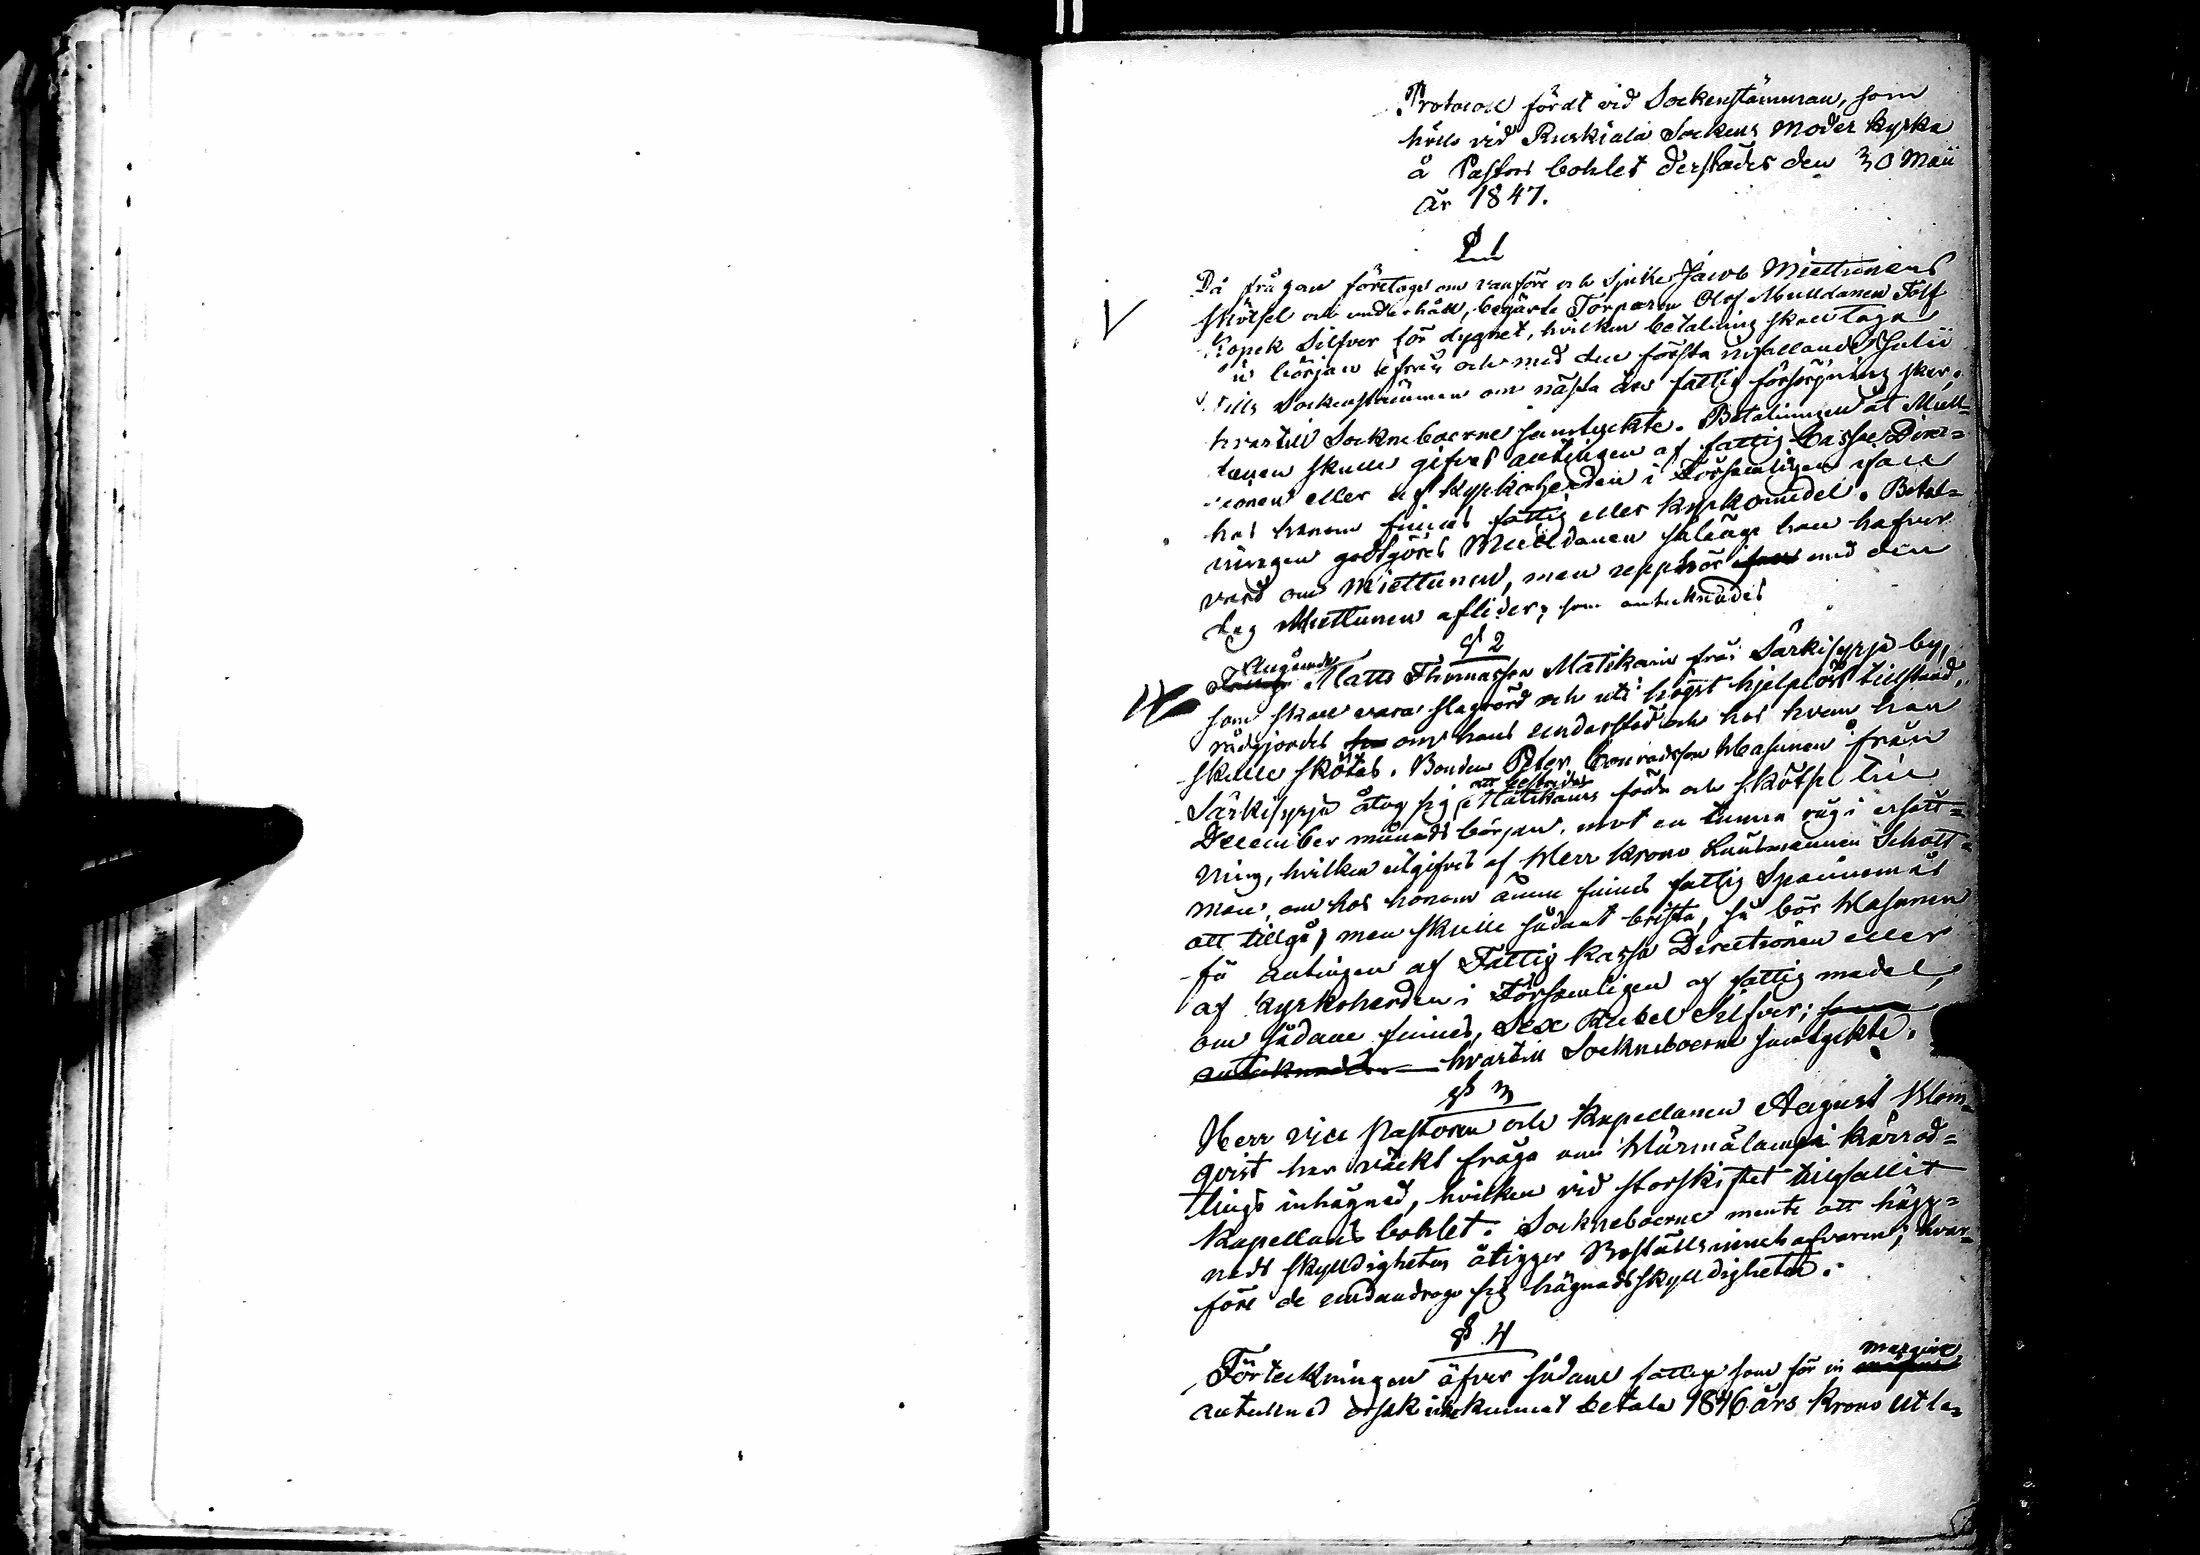 Protocoll fördt vid Sockenstämman, som
hölls vid Ruskiala Sockens Moder kyrka
å Pastors bohlet derstädes den 30 Maii
år 1847.
§ 1
Då frågan företogs om vanföre och sjuke Jacob Miettunens
skötsel och underhåll, begärte Torparen Olof Mulldanen Tolf
Kopek Silfver för dygnet, hvilken betalning skall taga
sin början ifrån och med den första infallande Julii
tills Sockenstämman om nästa års fattig försörjning sker,
hvartill Sockneboerne samtyckte. Betalningen åt Mull=
danen skulle gifvas antingen af fattig Casse Direc=
tionen eller af Kyrkoherden i Församlingen ifall
hos honom finnes fattig eller kyrkomedel. Betal=
ningen godtgöres Mulldanen sålänge han hafver
vård om Miettunen, men upphör med den
dag Miettunen aflider; som antecknades
§ 2
Angående
Matts Thomasson Matikain från Särkisyrjä by,
som skall vara slagrörd och uti högst hjelplöst tillstånd,
rådgjordes om hans understöd och hos hvem han
skulle skötas. Bonden Peter Conradsson Hasunen från
att bestrida
Särkisyrjä åtog sig Matikains föda och skötsel till
December månads början, mot en tunna råg i ersätt=
ning, hvilken utgifves af Herr Krono Länsmannen Schott=
man, om hos honom ännu finnes fattig Spannemål
att tillgå; men skulle sådant brista, så bör Hasunen
få antingen af Fattig kassa Directionen eller
af Kyrkoherden i Församligen af fattig medel,
om sådane finnes, Sex Rubel Silfver; som
antecknades hvartill Sockneboerne samtyckte.
§ 3
Herr Vice Pastoren och Kapellanen August Blom=
qvist har väckt fråga om Hurmälampi kärrod=
lings inhägnad, hvilken vid storskiftet tillfallit
Kapellans bohlet. Sockneboerne mente att hägg=
nads skylldigheten åligger Boställsinnehafvaren; hvar=
före de undandrogo sig hägnadsskylldigheten.
§ 4
margine
Förteckningen öfver sådane fattige som för in
antecknad orsak icke kunnat betala 1846 års Krono Utla=